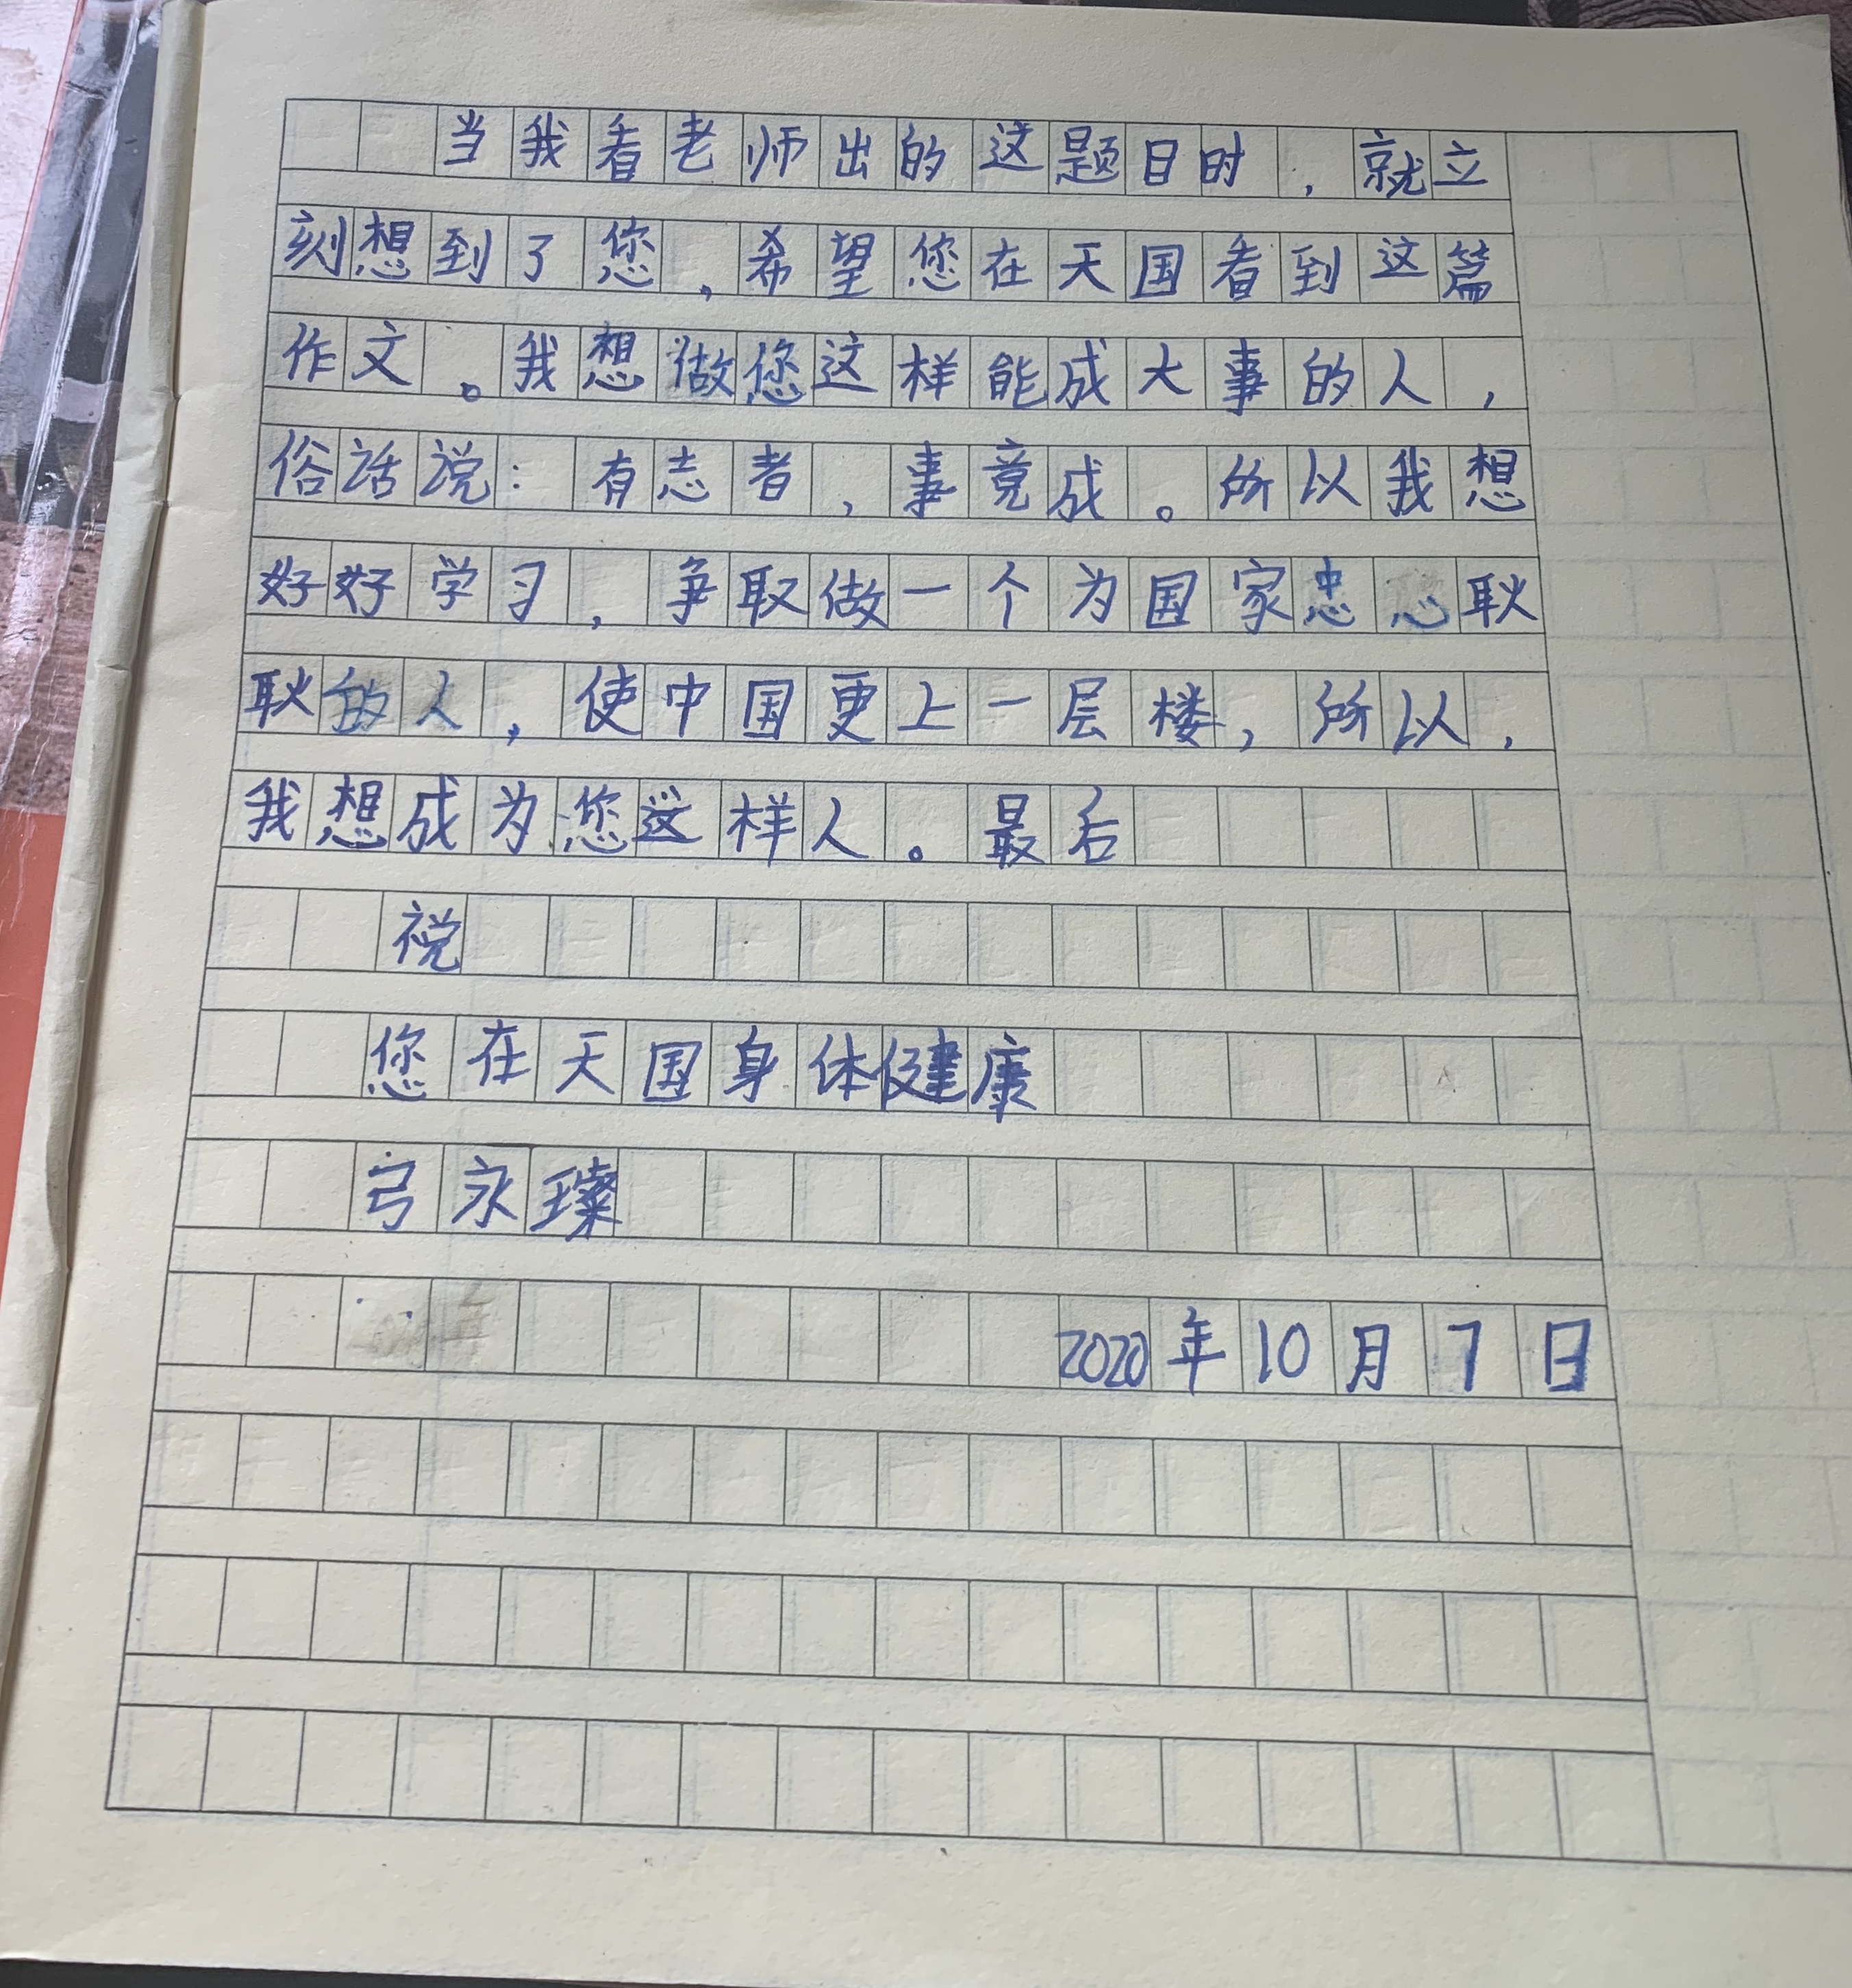 当我看老师出的这题目时，就立
刻想到了您，希望您在天国看到这篇
作文。我想做您这样能成大事的人，
俗话说：有志者，事竟成。所以我想
好好学习，争取做一个为国家忠心耿
耿的人，使中国更上一层楼，所以，
我想成为您这样人。最后
祝
您在天国身体健康
弓永璨
2020年10月7日